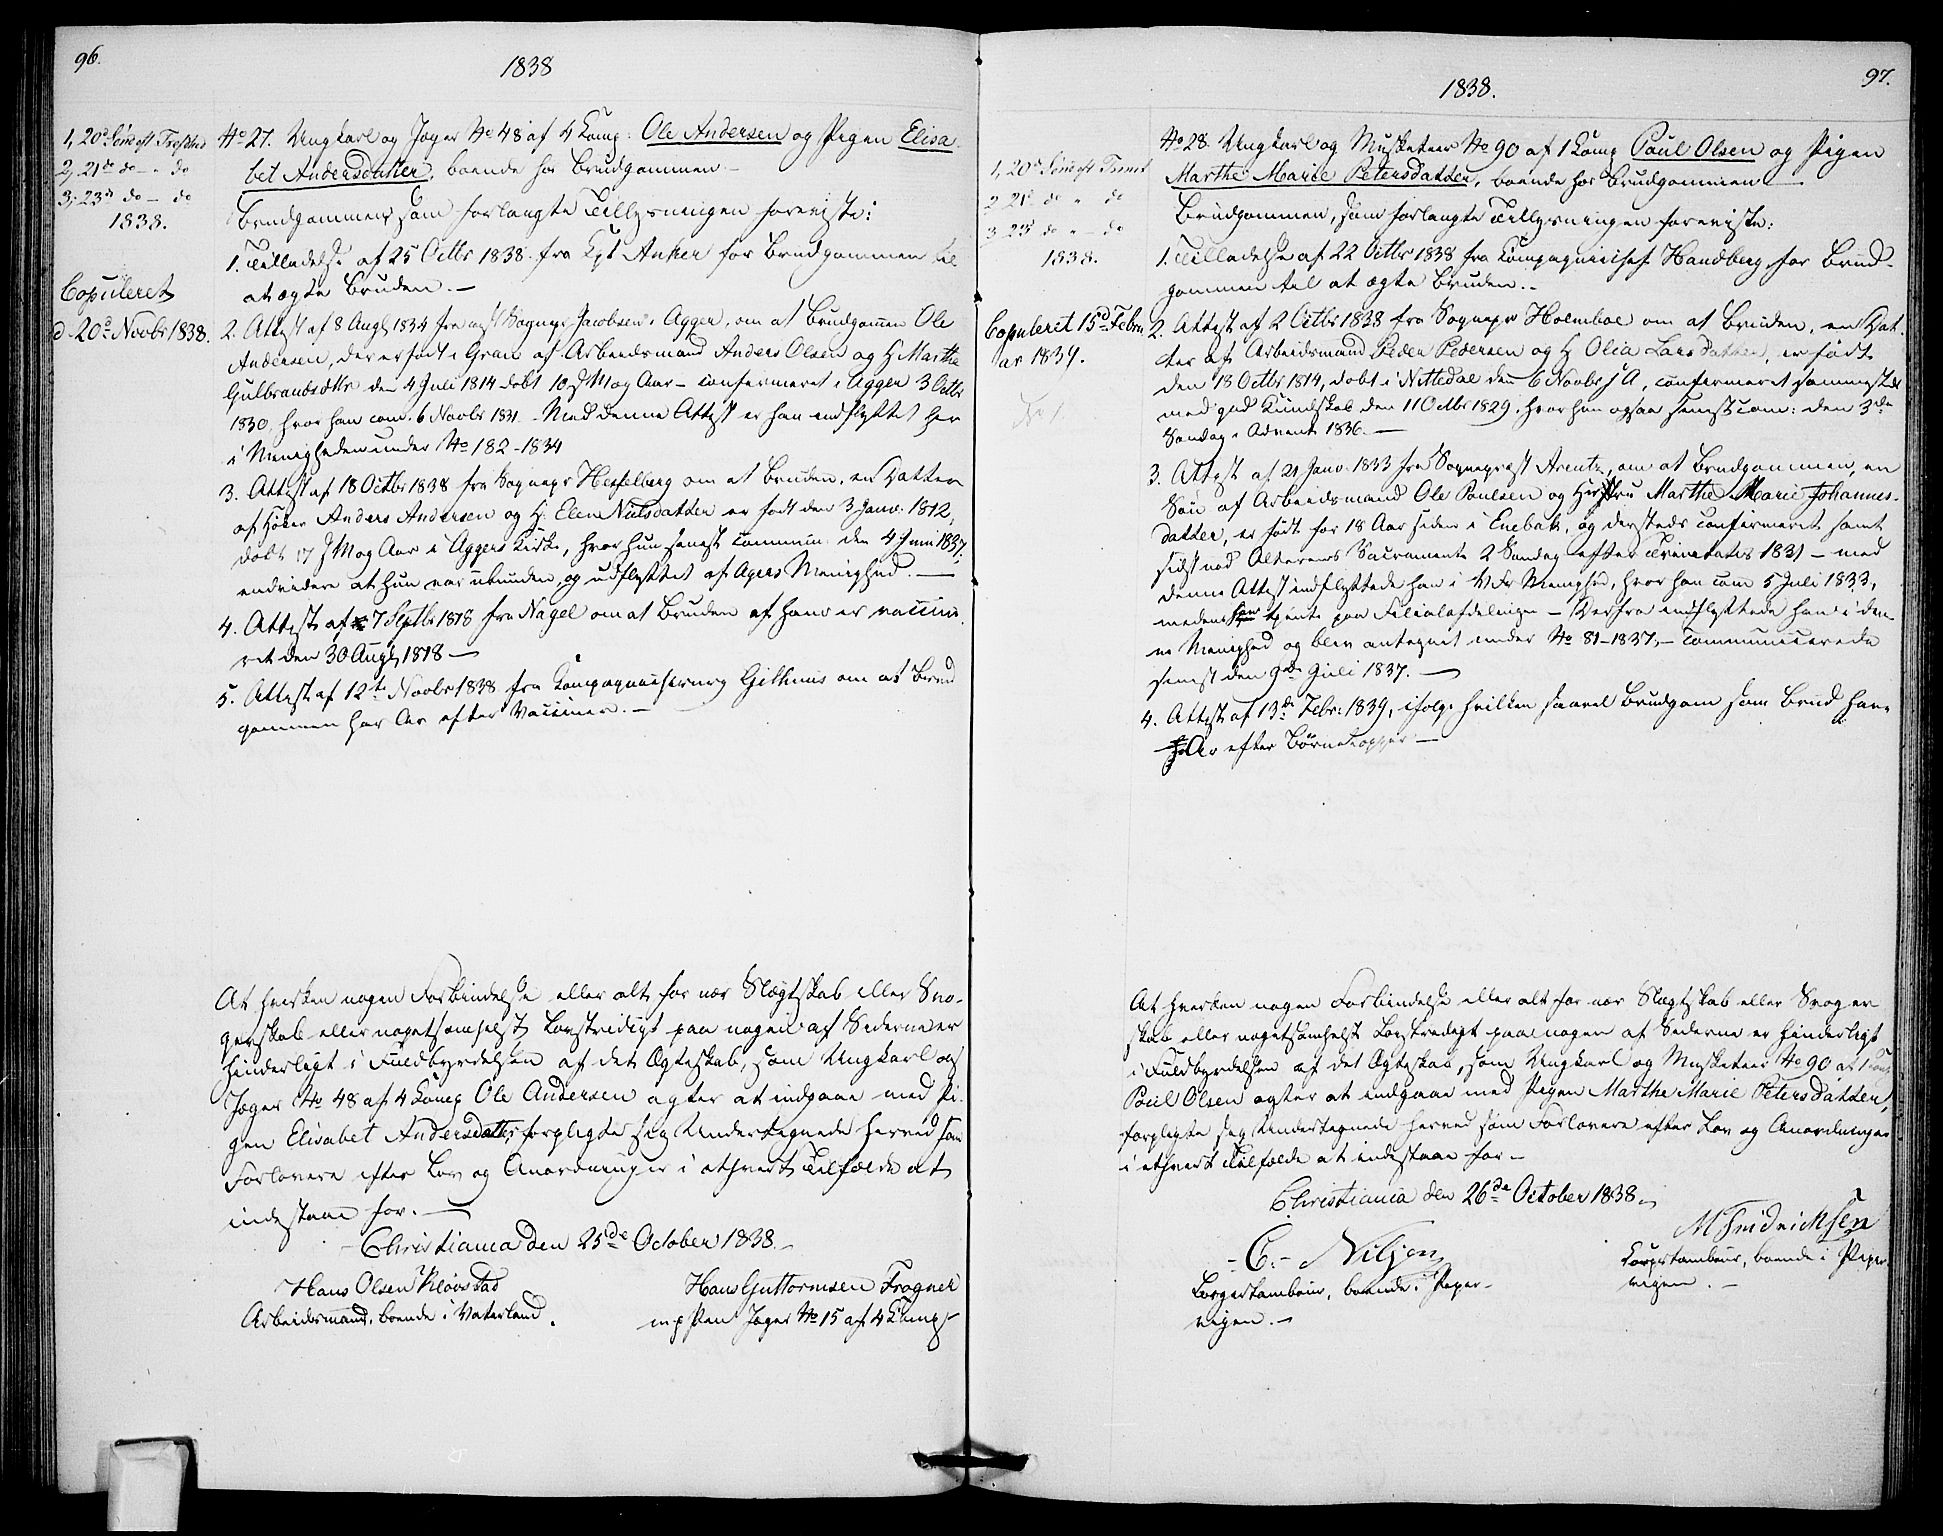 96.
1838
1, 20d Sönd eft Trefold
2, 21de do - " do
3, 23d do - do
1838.
Copuleret
d. 20d Novbr 1838.
No 27. Ungkarl og Jæger No 48 af 4 Komp: Ole Andersen og Pigen Elisa-
bet Andersdatter, boende hos Brudgommen.-
Brudgommen som forlangte Tillysningen foreviste:
1. Tilladelse af 25 Octbr 1838 fra Cpt Anker for Brudgommen til
at ægte Bruden.-
2. Attest af 8 Augt 1834 fra Sognepr Jacobsen i Agger, om at Brudgommen Ole
Andersen, der er født i Gran af Arbeidsmand Anders Olsen og H. Marthe
Gulbrandsdttr den 4 Juli 1814 døbt 10 s M og Aar - confirmeret i Agger 3 Octbr
1830, hvor han com. 6 Novbr 1831. - Med denne Attest er han indflyttet her
i Menigheden under No 182-1834
3. Attest af 18 Octbr 1838 fra Sognepr Hesselberg om at Bruden, en Datter
af Høker Anders Andersen og H. Elen Nilsdatter er født den 3 Janv: 1812,
døbt 17 s M og Aar i Aggers Kirke, hvor hun senest commun. den 4 Juni 1837,
endvidere at hun var ubunden, og udflyttet af Agers Menighed.-
4. Attest af 7 Septbr 1818 fra Nagel om at Bruden af ham er vaccine-
ret den 30 Augt 1818-
5. Attest af 12te Novbr 1838 fra Kompagnichirurg Githmis om at Brud
gommen har Ar efter Vaccinen.-
At hverken nogen Forbindelse eller alt for nær Slægtskab eller Svo-
gerskab eller nogetsomhelst Lovstridigt paa nogen af Siderne er
hinderligt i Fuldbyrdelsen af det Ægteskab, som Ungkarl og
Jæger No 48 af 4 Komp Ole Andersen agter at indgaae med Pi-
gen Elisabet Andersdatter forpligte sig Undertegnede herved som
Forlovere efter Lov og Anordninger i ethvert Tilfælde at
indestaae for.-
Christiania den 25de October 1838.-
Hans Olsen Kløvstad
Arbeidsmand, boende i Vaterland.
Hans Guttormsen Frogner
m p Pen Jæger No 15 af 4 Komp
97.
1838.
1, 20d Sönd eft Trinit
2 21d do " do
3 23d do " - do
1838.
Copuleret 15d Febru
ar 1839.
No 28. Ungkarl og Musketeer No 90 af 1 Komp Poul Olsen og Pigen
Marthe Marie Petersdatter, boende hos Brudgommen.-
Brudgommen, som forlangte Tillysningen foreviste:
1. Tilladelse af 22 Octbr 1838 fra Kompagnichef Handberg for Brud-
gommen til at ægte Bruden.-
2. Attest af 2 Octbr 1838 fra Sognepr Holmboe om at Bruden, en Dat-
ter af Arbeidsmand Peder Pedersen og H Olia Larsdatter, er født
den 18 Octbr 1814, døbt i Nittedal den 6 Novbr s A, confirmeret sammesteds
med god Kundskab den 11 Octbr 1829, hvor hun ogsaa senest com: den 3die
Søndag i Advent 1836.-
3. Attest af 29 Janv: 1833 fra Sognepræst Arentz, om at Brudgommen, en
Søn af Arbeidsmand Ole Poulsen og Hustru Marthe Marie Johannes-
datter, er født for 18 Aar siden i Enebak, og dersteds confirmeret samt
sidst nød Alterens Sacramente 2 Søndag efter Trinitatis 1831 - med
denne Attest indflyttede han i V Fr Menighed, hvor han com 5 Juli 1833,
medens han tjente paa Filialafdelingen - Derfra indflyttede han i den-
ne Menighed og blev antegnet under No 81-1837,- communicerede
senest den 9de Juli 1837.-
4. Attest af 13de Febr: 1839, ifølge hvilken saavel Brudgom som Brud have
Ar efter Børnekopper.-
At hverken nogen Forbindelse eller alt for nær Slægtskab eller Svoger-
skab eller nogetsomhelst Lovstridigt paa nogen af Siderne er hinderligt
i Fuldbyrdelsen af det Ægteskab, som Ungkarl og Musketeer No 90 af 1 Komp
Poul Olsen agter at indgaae med Pigen Marthe Marie Petersdatter,
forpligte sig Undertegnede herved som Forlovere efter Lov og Anordninger
i ethvert Tilfælde at indestaae for.-
Christiania den 26de October 1838.
- C. - Nilsen
Korpstambour, boende i Piper-
vigen.-
M Fridrichsen
Korpstambour, boende i Piper-
vigen.-